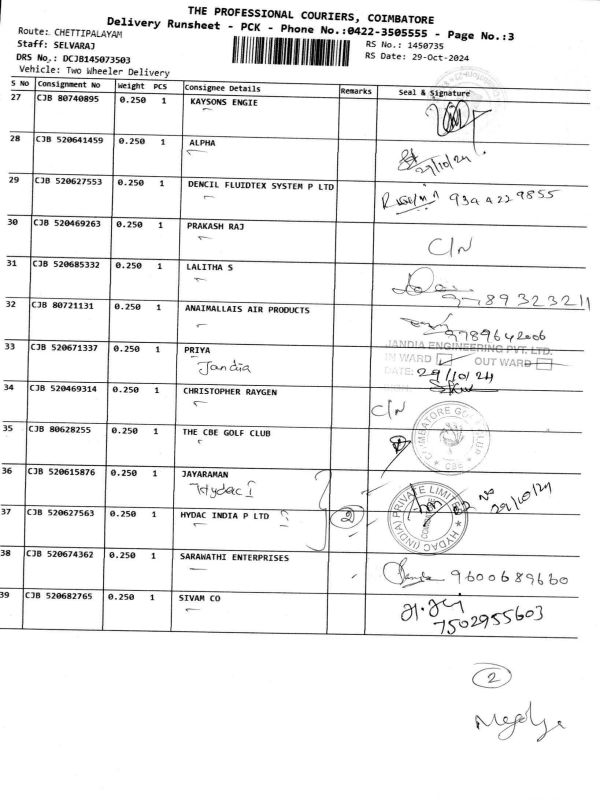 THE PROFESSIONAL COURIERS, COIMBATORE
Delivery Runsheet - PCK - Phone No.:0422-3505555 - Page No.:3
Route: CHETTIPALAYAM
Staff: SELVARAJ
RS No.: 1450735
DRS No.: DCJB145073503
RS Date: 29-Oct-2024
Vehicle: Two Wheeler Delivery
S No Consignment No Weight PCS Consignee Details Remarks Seal & Signature
27 CJB 80740895 0.250 1 KAYSONS ENGIE
28 CJB 520641459 0.250 1 ALPHA
29/10/24
29 CJB 520627553 0.250 1 DENCIL FLUIDTEX SYSTEM P LTD
30 CJB 520469263 0.250 1 PRAKASH RAJ
C/N
31 CJB 520685332 0.250 1 LALITHA S
32 CJB 80721131 0.250 1 ANAIMALLAIS AIR PRODUCTS
9789642006
33 CJB 520671337 0.250 1 PRIYA
Jandia
JANDIA ENGINEERING PVT. LTD.
IN WARD OUT WARD
DATE: 29/10/24
34 CJB 520469314 0.250 1 CHRISTOPHER RAYGEN
C/N
35 CJB 80628255 0.250 1 THE CBE GOLF CLUB
CBE
36 CJB 520615876 0.250 1 JAYARAMAN
Hydac I
37 CJB 520627563 0.250 1 HYDAC INDIA P LTD
2
HYDAC (INDIA) PRIVATE LIMITED
29/10/24
38 CJB 520674362 0.250 1 SARAWATHI ENTERPRISES
9600689660
39 CJB 520682765 0.250 1 SIVAM CO
7502955603
2